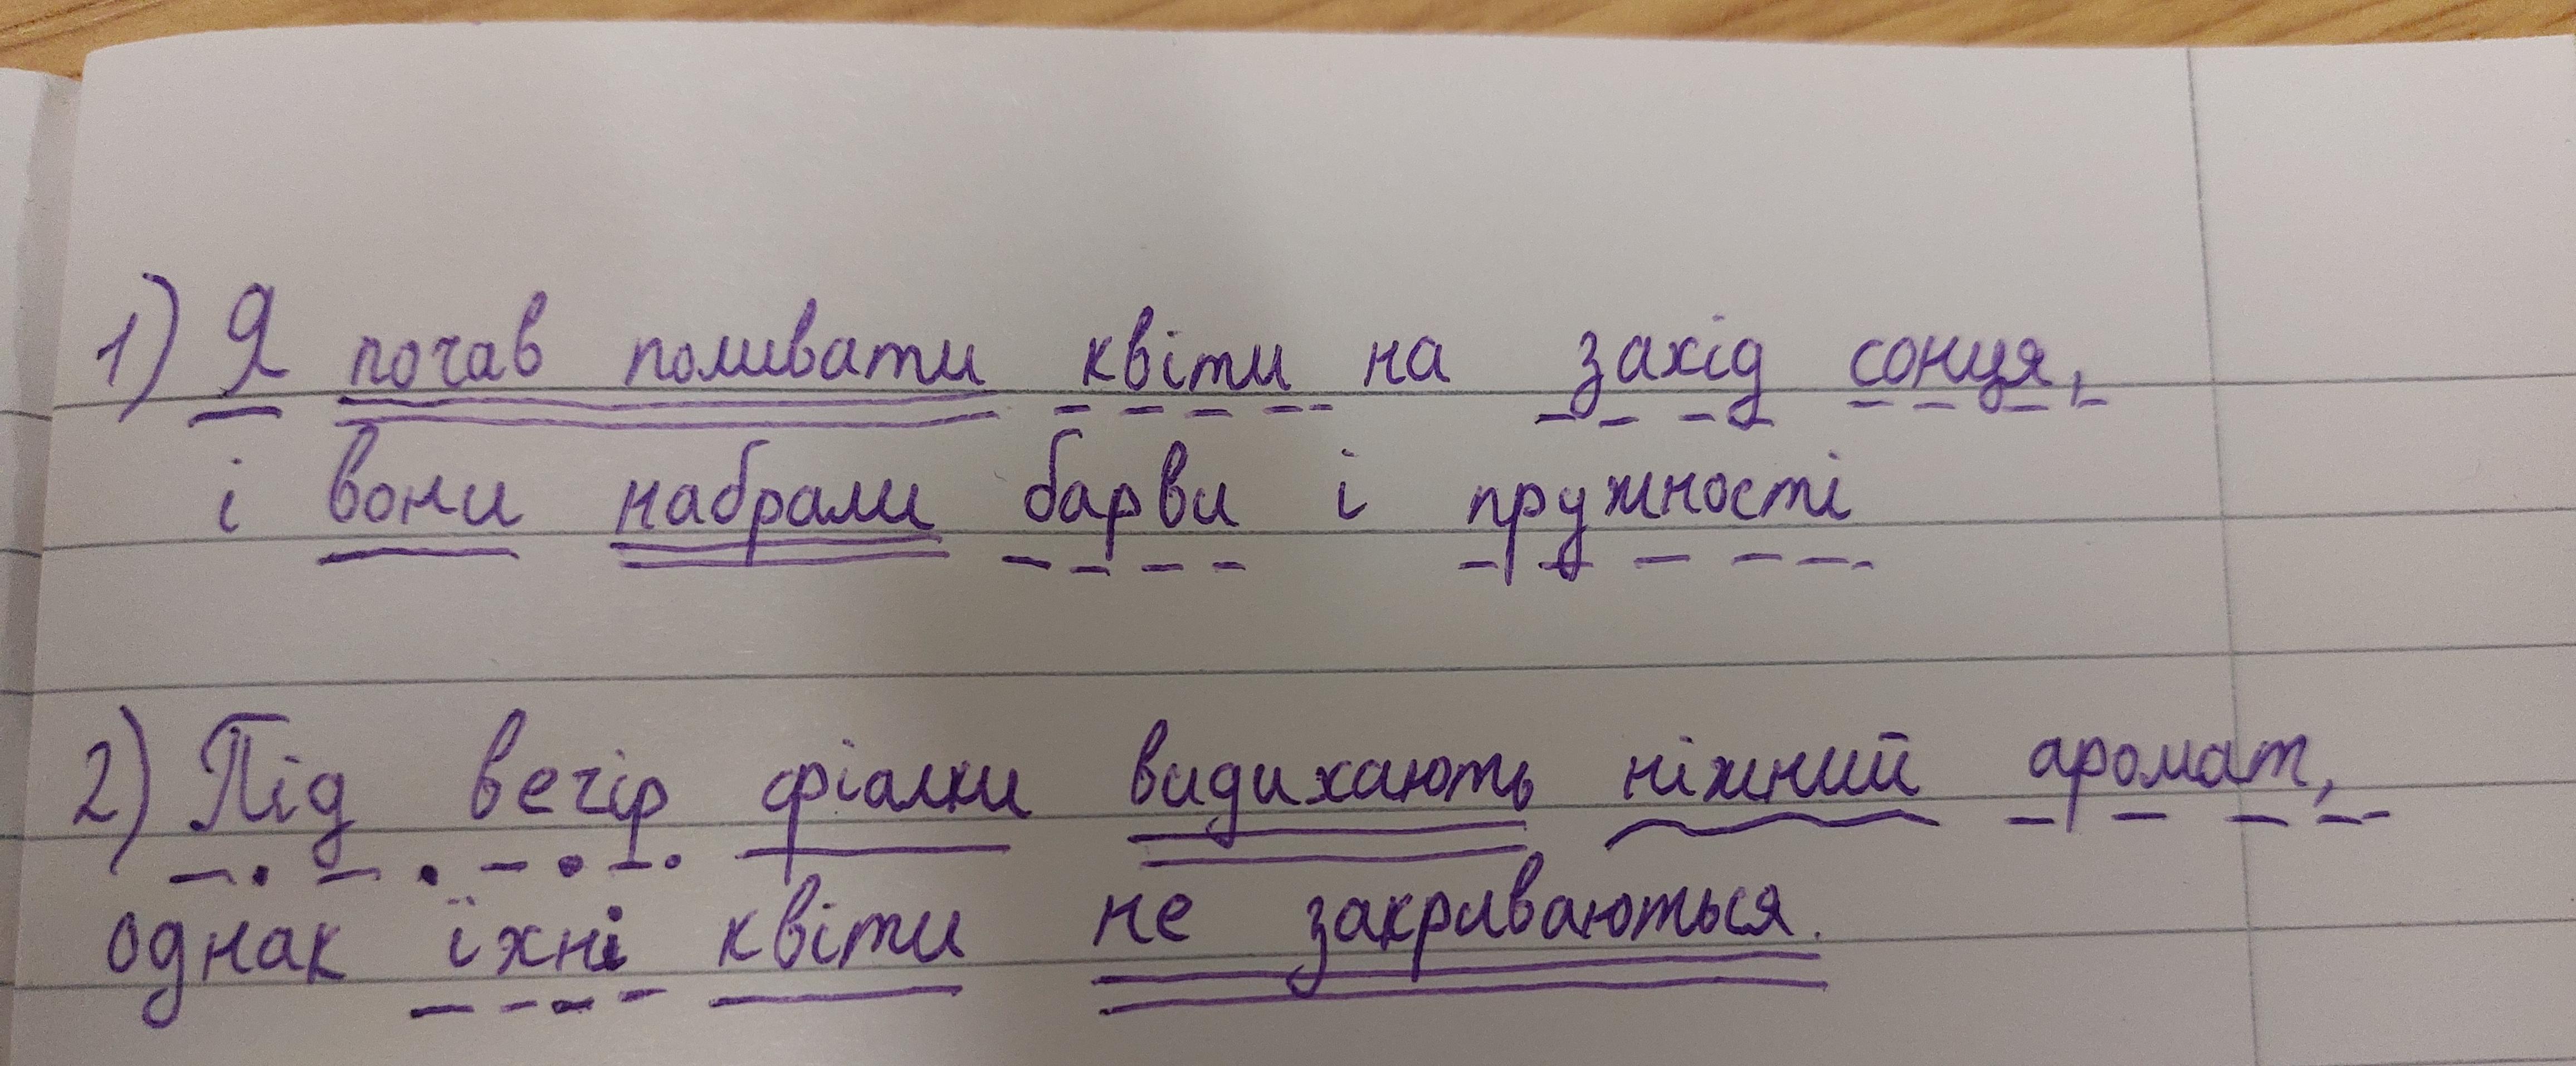 1) Я почав поливати квіти на захід сонця,
і вони набрали барви і пружності
2) Під вечір фіалки видихають ніжний аромат,
однак їхні квіти не закриваються.